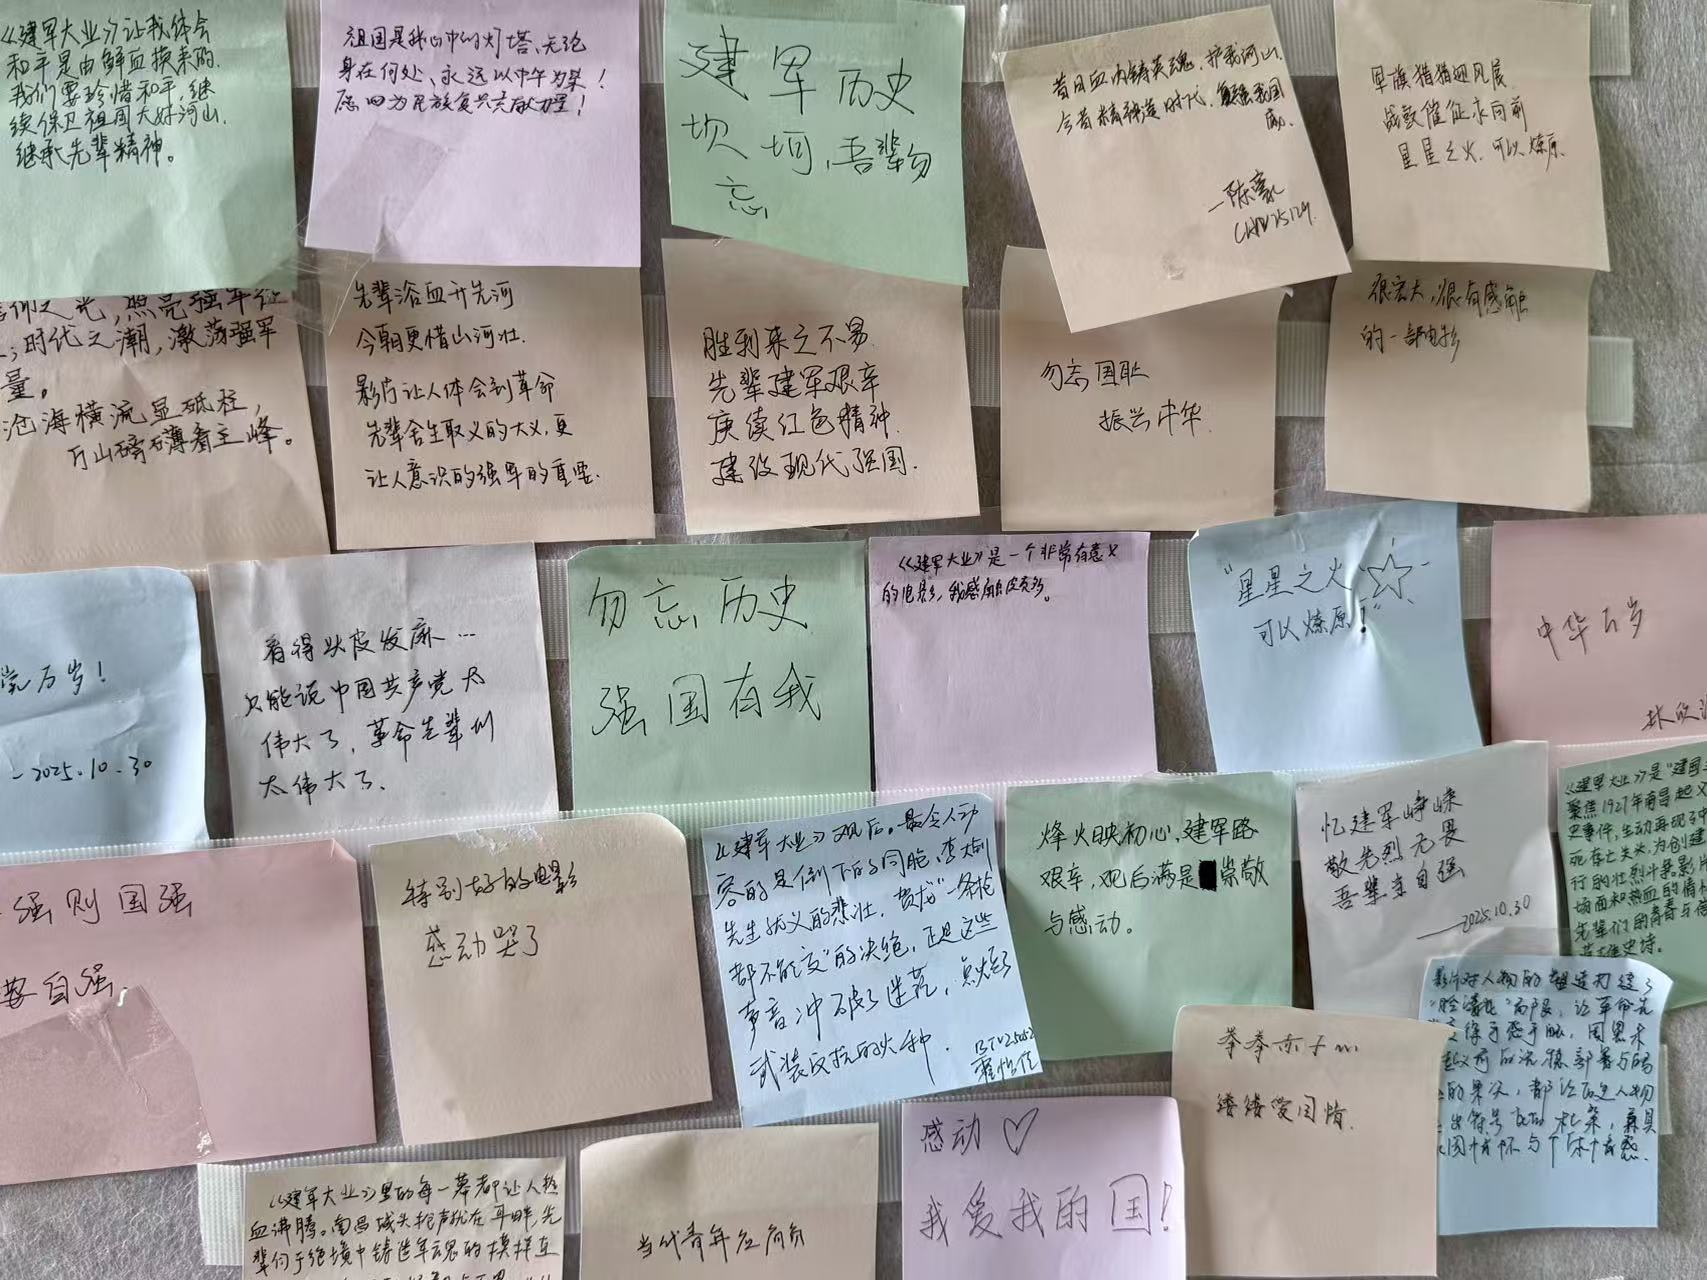 《建军大业》让我体会
和平是由鲜血换来的.
我们要珍惜和平,继
续保卫祖国大好河山.
继承先辈精神。
祖国是我心中的灯塔、无论
身在何处、永远以中华为荣!
愿四为民族复兴贡献力量!
建军历史
坎坷,吾辈勿
忘
昔日血肉铸英魂,护我河山.
今昔精神造时代,强我国
威.
—陈豪
军旗猎猎迎风展.
战鼓催征永向前
星星之火.可以燎原.
信仰之光,照亮强军征
时代之潮,激荡强军
量。
沧海横流显砥柱,
万山磅礴看主峰。
先辈浴血开先河
今朝更惜山河壮.
影片让人体会到革命
先辈舍生取义的大义,更
让人意识的强军的重要.
胜利来之不易.
先辈建军艰辛
赓续红色精神.
建设现代强国.
勿忘国耻
振兴中华.
很宏大,很有感触
的一部电影
党万岁!
-2025.10.30
看得头皮发麻…
只能说中国共产党太
伟大了,革命先辈们
太伟大了.
勿忘历史
强国有我
《建军大业》是一个非常有意义
的电影,我感触良多。
"星星之火
可以燎原!"
中华万岁
强则国强
要自强.
特别好的电影
感动哭了
《建军大业》观后。最令人动
容的是倒下的同胞.李大钊
先生就义的悲壮,贺龙"一条枪
都不能交"的决绝,正是这些
声音冲破了迷茫,点燃了
武装反抗的火种.
BTV25052
烽火映初心,建军路
艰辛,观后满是崇敬
与感动。
忆建军峥嵘
敬先烈无畏
吾辈当自强
——2025.10.30
《建军大业》是"建国
聚焦1927年南昌起义
史事件,生动再现了中
死存亡关头,为创建
行的壮烈斗争.影片
场面和热血的情
先辈们的青春与信
英雄史诗。
影片对人物的塑造打破了
"脸谱化"局限,让革命先
的果决,都让历史人物
国情怀与个体情感.
拳拳赤子心
缕缕爱国情.
《建军大业》里的每一幕都让人热
血沸腾。南昌城头枪声犹在耳畔,先
辈们于绝境中铸造军魂的模样在
当代青年应有负
感动♡
我爱我的国!